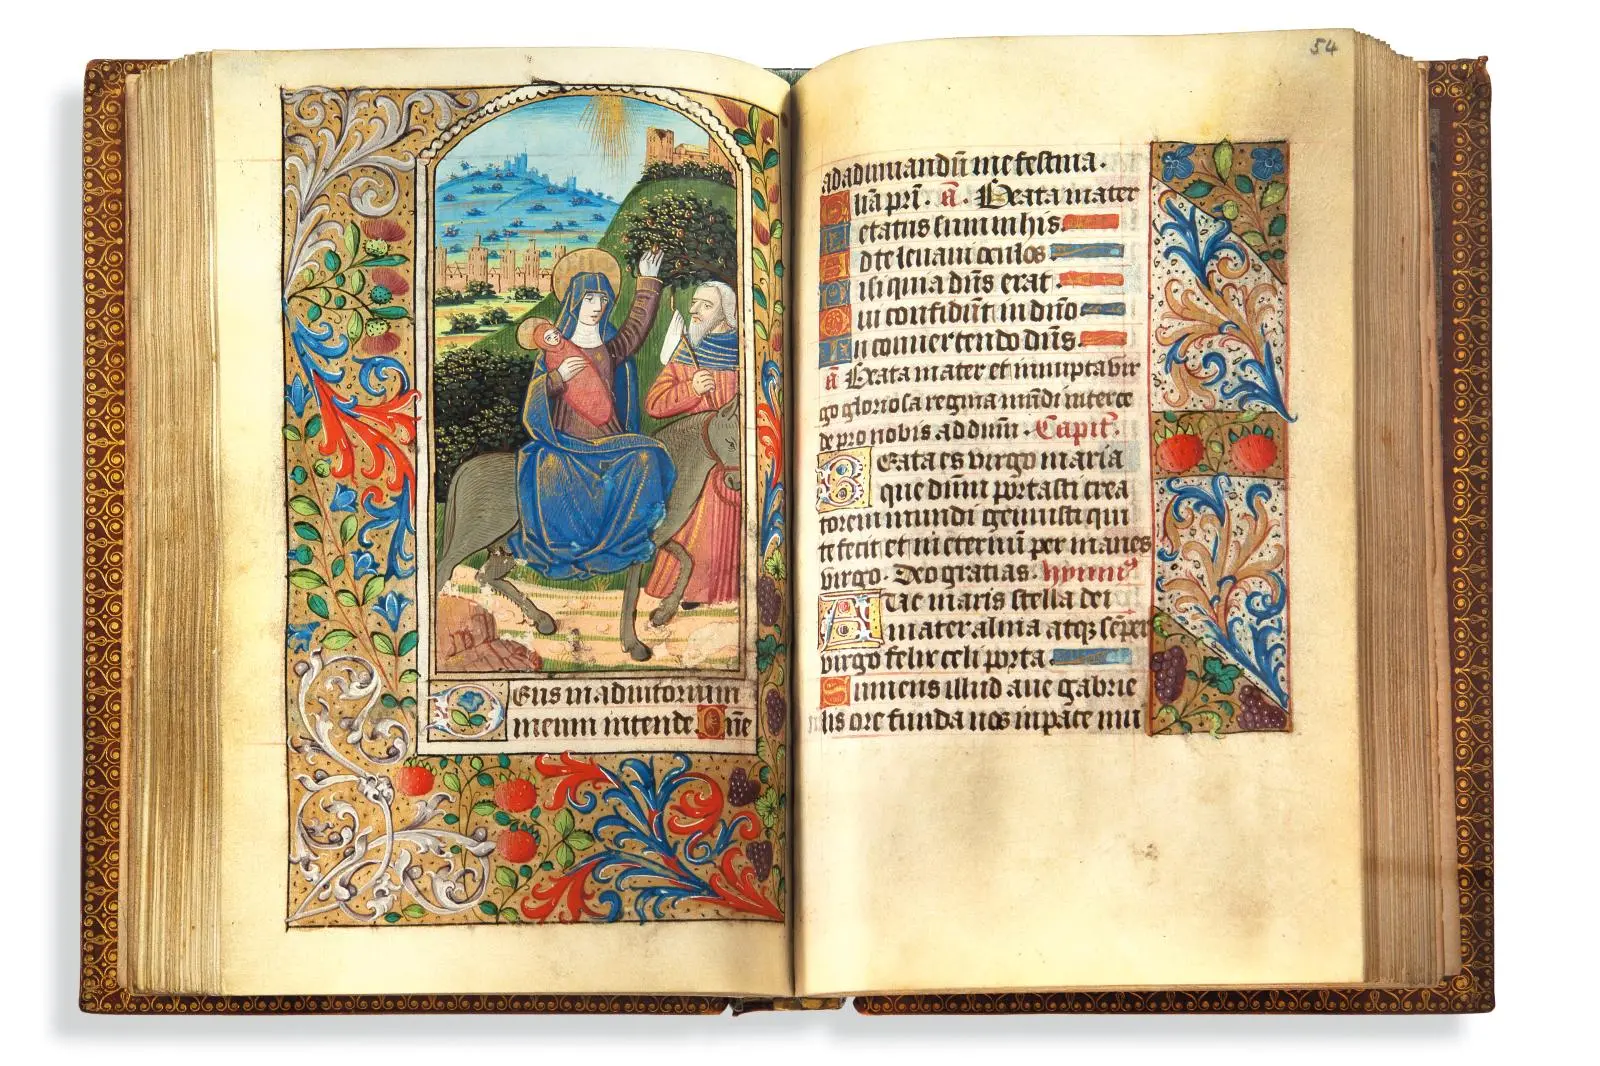 Deus in adiutorium
meum intende. Oñe
54
ad adiuuandũ me festina.
Glia pr̃i. a᷃. Beata mater
Letatus sum in his.
Ad te leuaui oculos
Nisi quia dñs erat.
Qui confidũt in dño
In conuertendo dñs.
a᷃ Beata mater et innupta vir
go gloriosa regina mũdi interce
de pro nobis ad dñm. Capit̃.
Beata es virgo maria
que dñm portasti crea
torem mundi genuisti qui
te fecit et in eternũ permanes
virgo. Deo gratias. hymnꝰ
Aue maris stella dei
mater alma atqꝫ sẽper
virgo felix celi porta.
Sumens illud aue gabrie
lis ore funda nos in pace mu